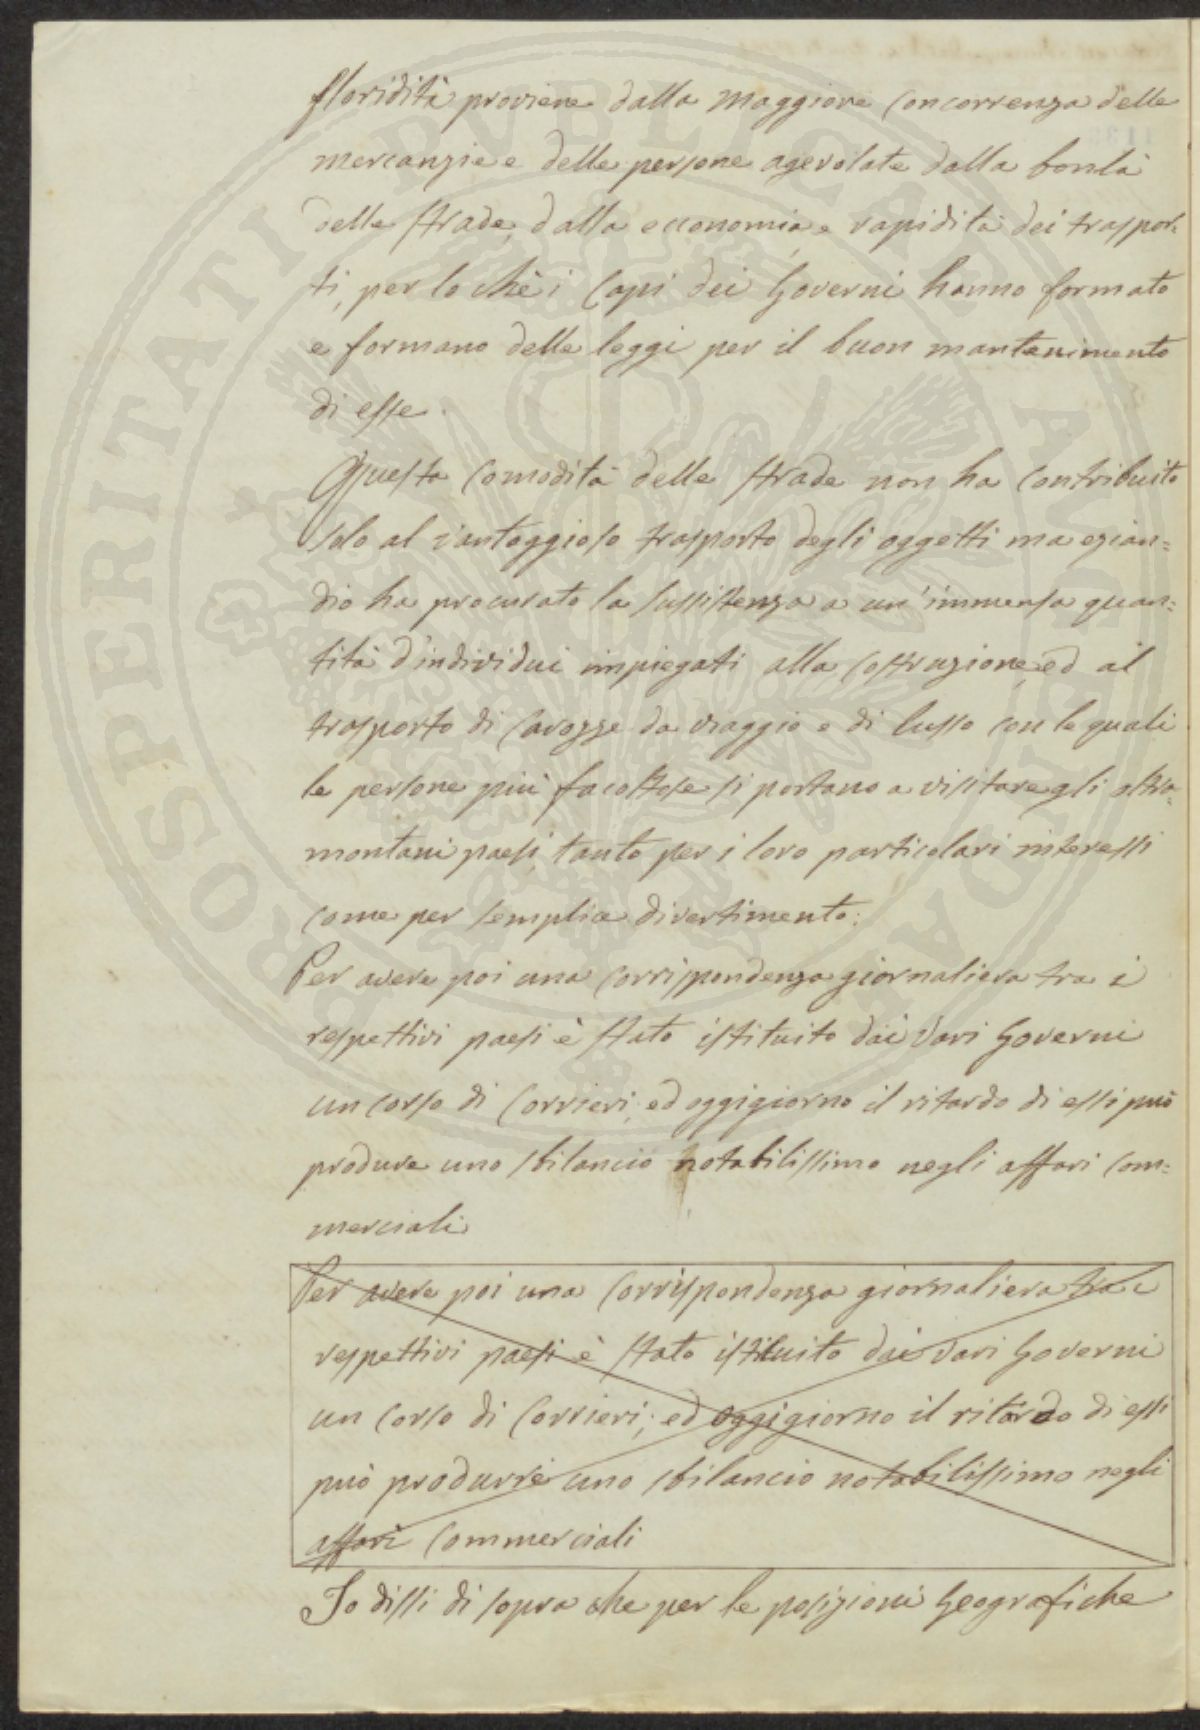 floridità proviene dalla maggiore concorrenza delle
mercanzie e delle persone agevolate dalla bontà
delle strade, dalla economia, e rapidità dei traspor=
ti, per lo chè i Capi dei Governi hanno formato
e formano delle leggi per il buon mantenimento
di esse.
Questa comodità delle strade non ha contribuito
solo al vantaggioso trasporto degli oggetti ma ezian=
dio ha procurato la sussistenza a un'immensa quan=
tità d'individui impiegati alla costruzione, ed al
trasporto di carozze da viaggio e di lusso con le quali
le persone più facoltose si portano a visitare gli oltra=
montani paesi, tanto per i loro particolari interessi
come per semplice divertimento:
Per avere poi una corrispondenza giornaliera tra i
respettivi paesi è stato istituito dai vari Governi
un corso di Corrieri; ed oggigiorno il ritardo di essi può
produre uno sbilancio notabilissimo negli affari com=
merciali
Per avere poi una corrispondenza giornaliera tra i
respettivi paesi è stato istituito dai vari Governi
un corso di Corrieri; ed oggigiorno il ritardo di essi
può produrre uno sbilancio notabilissimo negli
affari commerciali
Io dissi di sopra che per le posizioni Geografiche
PROSPERITATI PUBLICAE AUGENDAE